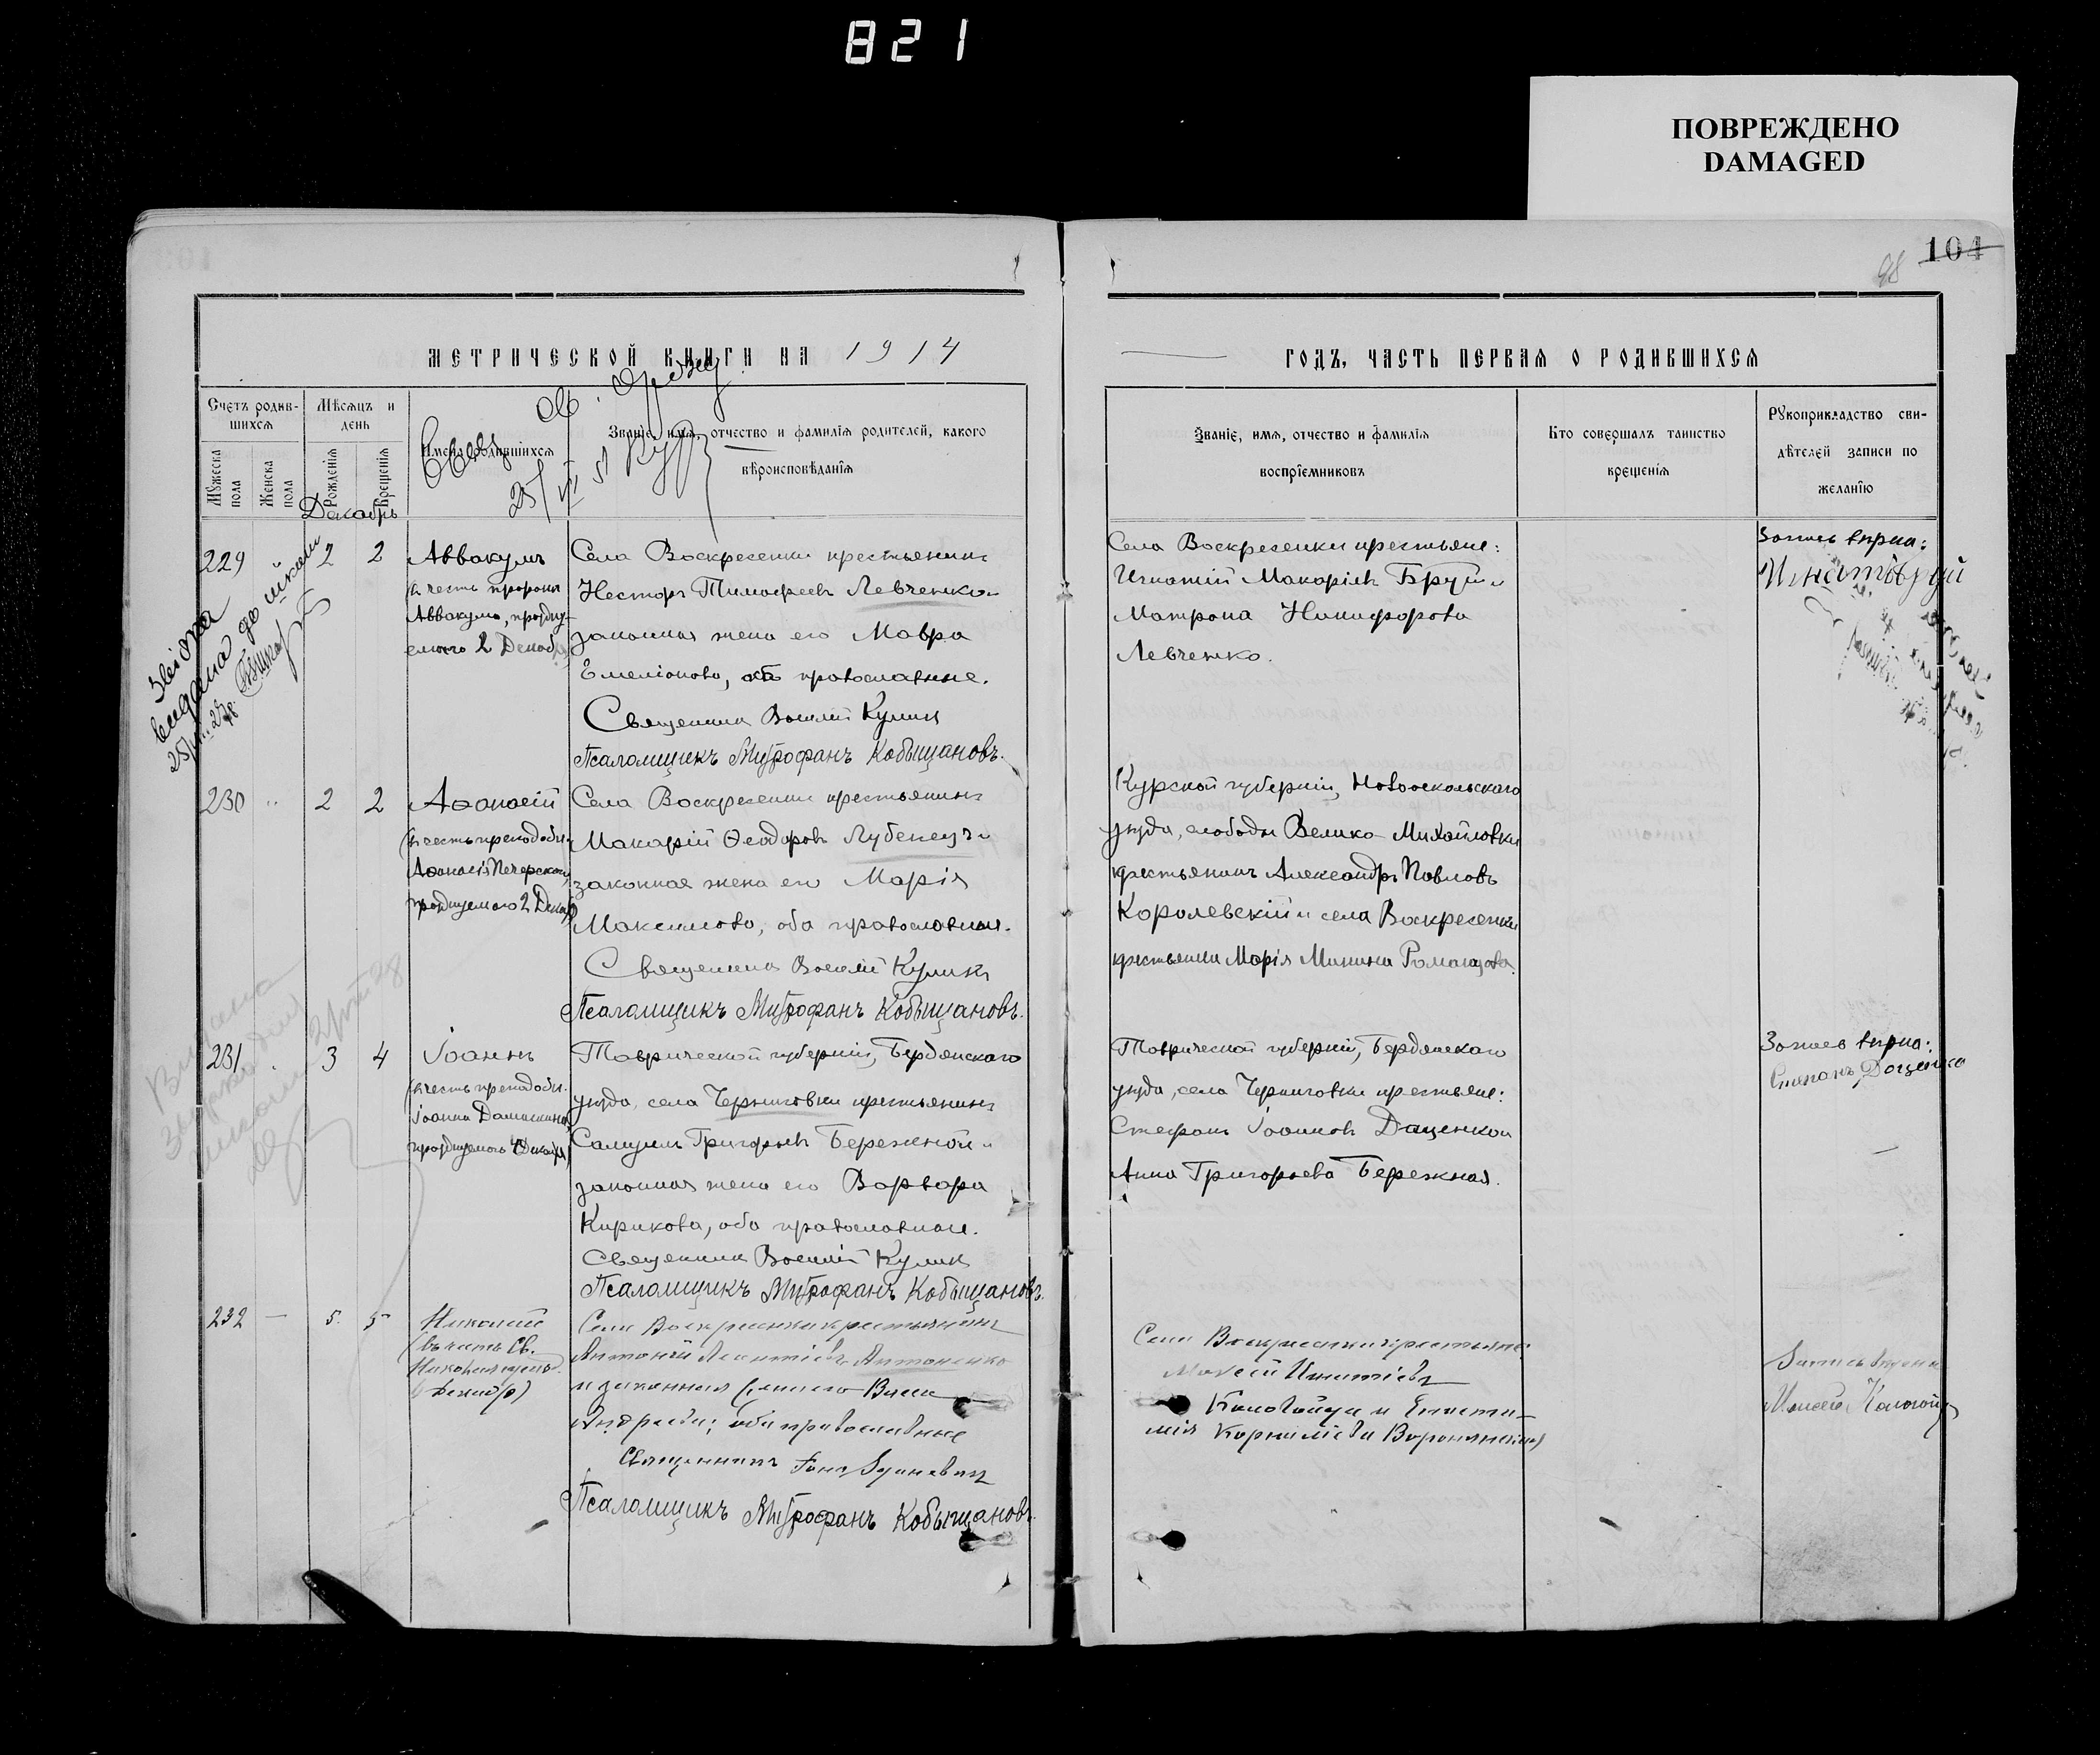 821
ПОВРЕЖДЕНО
DAMAGED
104
98
МЕТРИЧЕСКОЙ КНИГИ НА 1914
ГОДЪ, ЧАСТЬ ПЕРВАЯ О РОДИВШИХСЯ
Счетъ родив-
шихся
Мѣсяцъ и
день
Мужеска
пола
Женска
пола
Рожденія
Крещенія
Имена родившихся
Званіе, имя, отчество и фамилія родителей, какого
вѣроисповѣданія
Званіе, имя, отчество и фамилія
воспріемниковъ
Кто совершалъ таинство
крещенія
Рукоприкладство сви-
дѣтелей записи по
желанію
Декабрь
229 " 2 2
Аввакумъ
(въ честь пророка
Аввакума, праздну-
емаго 2 Декабря)
Села Воскресенки крестьянинъ
Несторъ Тимофеевъ Левченко и
законная жена его Мавра
Емеліанова, оба православные.
Священникъ Василій Куликъ
Псаломщикъ Митрофанъ Кобыщановъ.
Села Воскресенки крестьяне:
Игнатій Макаріевъ Бруй и
Матрона Никифорова
Левченко.
Запись вѣрна:
Игнатъ Бруй
230 " 2 2
Аѳанасій
(въ честь преподобн.
Аѳанасія Печерскаго,
празднуемаго 2 Декабря)
Села Воскресенки крестьянинъ
Макарій Ѳеодоровъ Лубенецъ и
законная жена его Марія
Максимова, оба православные.
Священникъ Василій Куликъ
Псаломщикъ Митрофанъ Кобыщановъ.
Курской губерніи, Новооскольскаго
уѣзда, слободы Велико-Михайловки
крестьянинъ Александръ Павловъ
Королевскій и села Воскресенки
крестьянка Марія Минина Романцова.
231 " 3 4
Іоаннъ
(въ честь преподобн.
Іоанна Дамаскина,
празднуемаго 4 Декабря)
Таврической губерніи, Бердянскаго
уѣзда, села Черниговки крестьянинъ
Самуилъ Григорьевъ Бережной и
законная жена его Варвара
Кирикова, оба православные.
Священникъ Василій Куликъ
Псаломщикъ Митрофанъ Кобыщановъ.
Таврической губерніи, Бердянскаго
уѣзда, села Черниговки крестьяне:
Стефанъ Іоанновъ Даценко и
Анна Григорьева Бережная.
Запись вѣрна:
Степанъ Даценко
232 — 5. 5
Николай
(въ честь Св.
Декабря)
Села Воскресенки крестьянинъ
Антоній Леонтіевъ Антоненко
и законная его Васса
Андреева; оба православные
Священникъ
Псаломщикъ Митрофанъ Кобыщановъ.
Села Воскресенки крестьяне:
Моисей Игнатіевъ
Корниліева
Запись вѣрна
Моисей